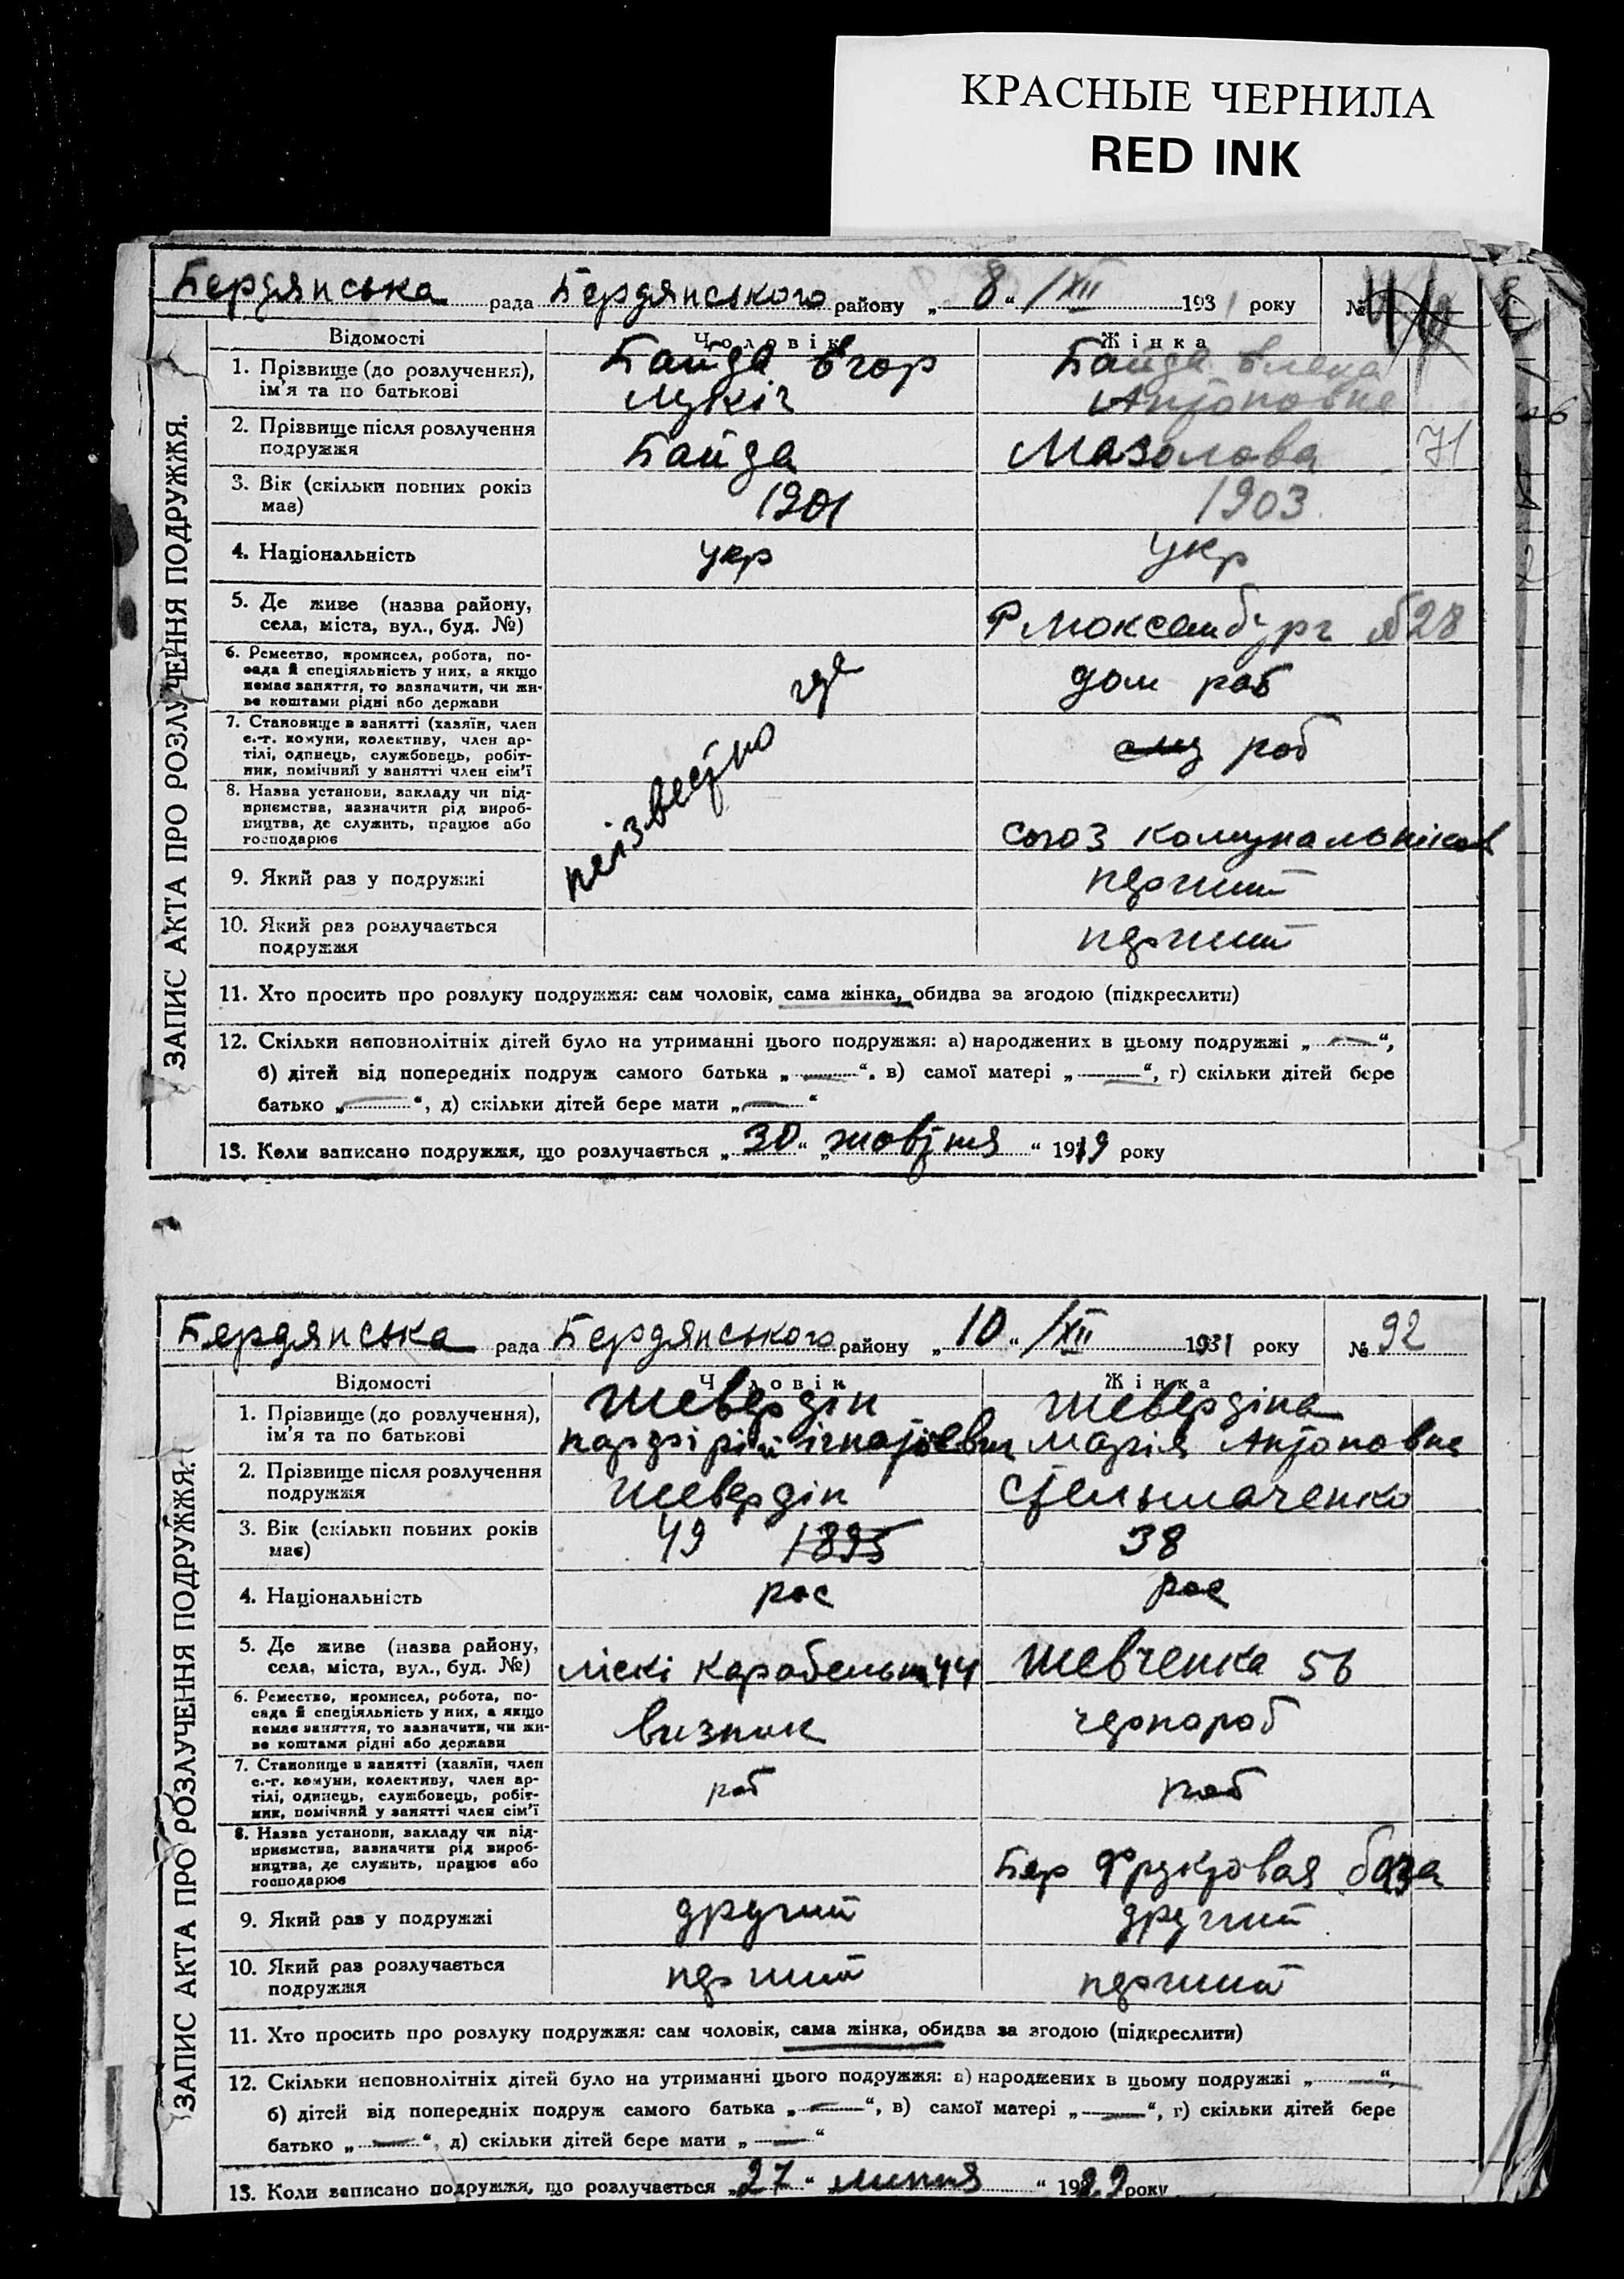 КРАСНЫЕ ЧЕРНИЛА
RED INK
Бердянська рада Бердянського району „ 8 “ /XII 1931 року №
Відомості Чоловік Жінка
ЗАПИС АКТА ПРО РОЗЛУЧЕННЯ ПОДРУЖЖЯ.
1. Прізвище (до розлучення), ім'я та по батькові
Байда Єгор
Лукіч
Байда Єлена
Антоновна
2. Прізвище після розлучення подружжя
Байда
Мозолова
71
3. Вік (скільки повних років має)
1901
1903
4. Національність
укр
укр
5. Де живе (назва району, села, міста, вул., буд. №)
Р Люксембург №28
6. Ремество, промисел, робота, по-
сада й спеціяльність у них, а якщо
немає заняття, то зазначити, чи жи-
ве коштами рідні або держави
дом раб
7. Становище в занятті (хазяїн, член
с.-г. комуни, колективу, член ар-
тілі, одинець, службовець, робіт-
ник, помічний у занятті член сім'ї
роб
8. Назва установи, закладу чи під-
приємства, зазначити рід вироб-
ництва, де служить, працює або
господарює
неізвестно где
союз комунальніков
9. Який раз у подружжі
перший
10. Який раз розлучається
подружжя
перший
11. Хто просить про розлуку подружжя: сам чоловік, сама жінка, обидва за згодою (підкреслити)
12. Скільки неповнолітніх дітей було на утриманні цього подружжя: а) народжених в цьому подружжі „ — “,
б) дітей від попередніх подруж самого батька „ — “, в) самої матері „ — “, г) скільки дітей бере
батько „ — “, д) скільки дітей бере мати „ — “
13. Коли записано подружжя, що розлучається „ 30 “ „ жовтня “ 1919 року
Бердянська рада Бердянського району „ 10 “ /XII 1931 року № 92
Відомості Чоловік Жінка
ЗАПИС АКТА ПРО РОЗЛУЧЕННЯ ПОДРУЖЖЯ.
1. Прізвище (до розлучення),
ім'я та по батькові
Шевердін
Шевердіна
Марія Антоновна
2. Прізвище після розлучення
подружжя
Шевердін
Стельмаченко
3. Вік (скільки повних років
має)
49 1895
38
4. Національність
рос
рос
5. Де живе (назва району,
села, міста, вул., буд. №)
Ліскі Карабельна 44
Шевченка 56
6. Ремество, промисел, робота, по-
сада й спеціяльність у них, а якщо
немає заняття, то зазначити, чи жи-
ве коштами рідні або держави
визник
чернороб
7. Становище в занятті (хазяїн, член
с.-г. комуни, колективу, член ар-
тілі, одинець, службовець, робіт-
ник, помічний у занятті член сім'ї
роб
роб
8. Назва установи, закладу чи під-
приємства, зазначити рід вироб-
ництва, де служить, працює або
господарює
Бер Фруктовая база
9. Який раз у подружжі
другий
другий
10. Який раз розлучається
подружжя
перший
перший
11. Хто просить про розлуку подружжя: сам чоловік, сама жінка, обидва за згодою (підкреслити)
12. Скільки неповнолітніх дітей було на утриманні цього подружжя: а) народжених в цьому подружжі „ — “,
б) дітей від попередніх подруж самого батька „ — “, в) самої матері „ — “, г) скільки дітей бере
батько „ — “, д) скільки дітей бере мати „ — “
13. Коли записано подружжя, що розлучається „ 27 “ „ липня “ 1929 року